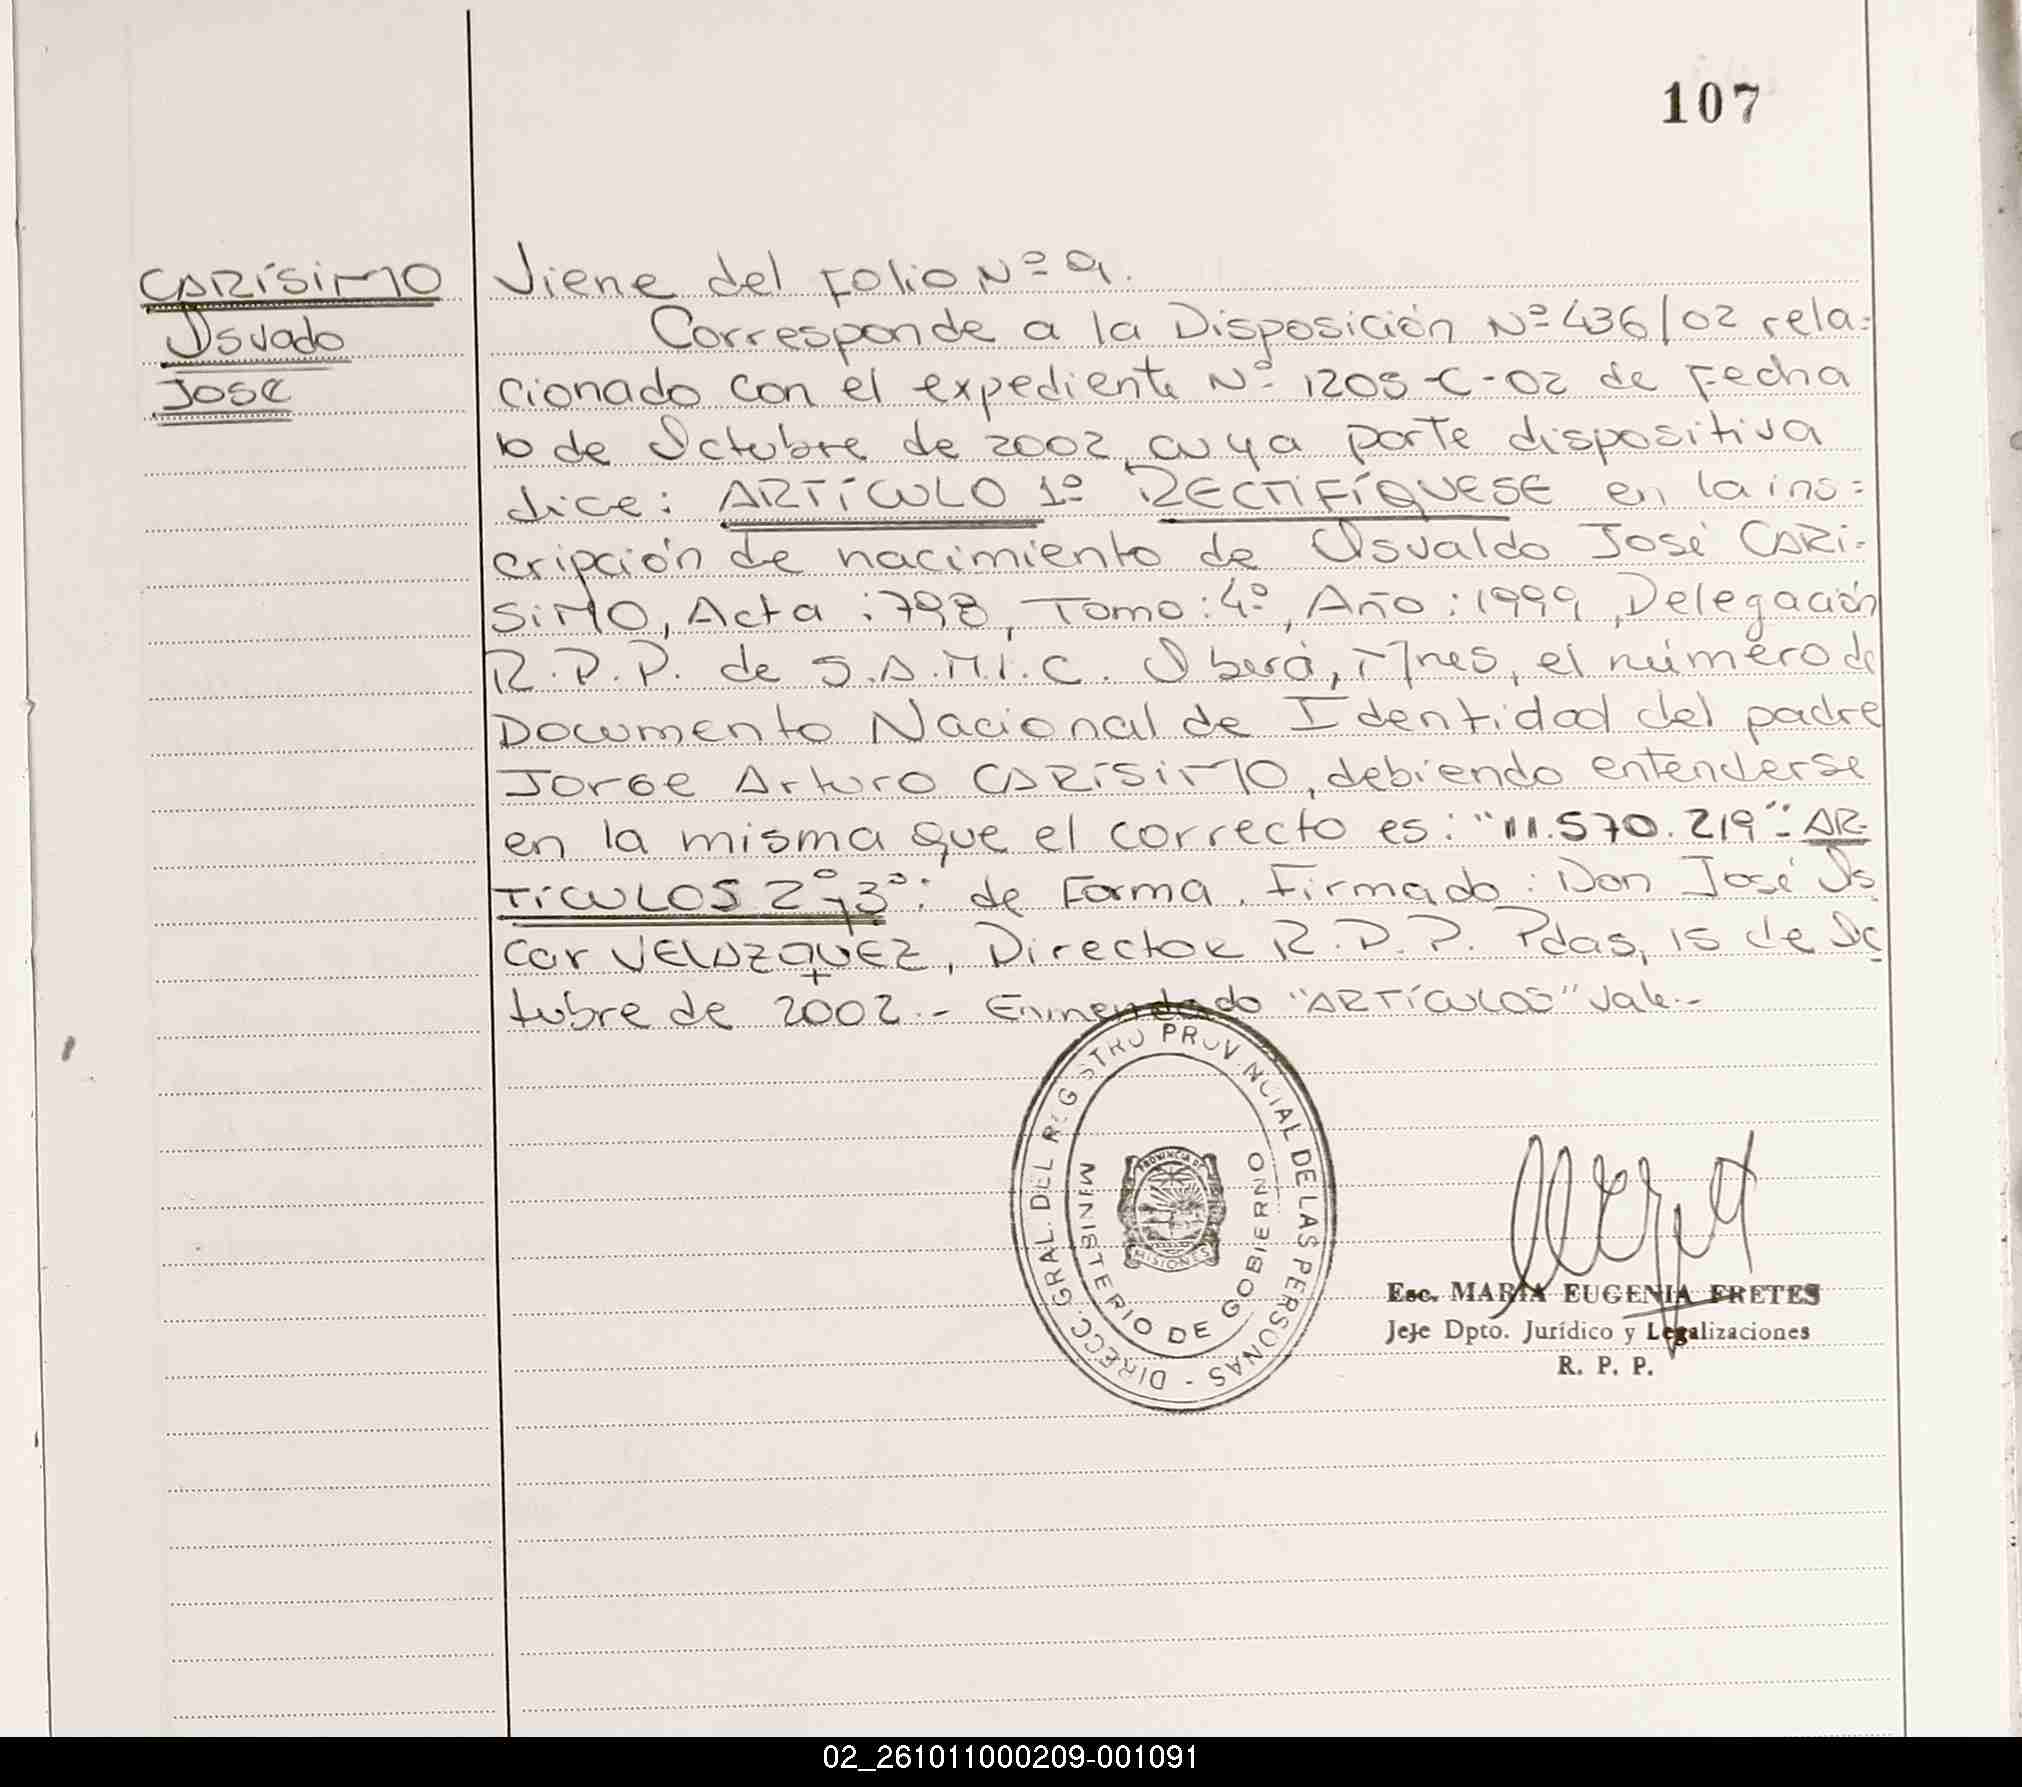 107
CARÍSIMO
Osvado
José
Viene del Folio Nº 9.
Corresponde a la Disposición Nº 436/02 rela=
cionado con el expediente Nº 1205-C-02 de Fecha
10 de Octubre de 2002, cuya parte dispositiva
dice: ARTÍCULO 1º RECTIFÍQUESE en la ins=
cripción de nacimiento de Osvaldo José CARÍ=
SIMO, Acta: 798, Tomo: 4º, Año: 1999, Delegación
R.P.P. de S.A.M.I.C. Oberá, Mnes, el número de
Documento Nacional de Identidad del padre
Jorge Arturo CARÍSIMO, debiendo entenderse
en la misma que el correcto es: "11.570.219".- AR-
TÍCULOS 2º y 3º: de Forma. Firmado: Don José Os
car VELAZQUEZ, Director R.P.P. Pdas, 15 de Oc
tubre de 2002.- Enmendado "ARTÍCULOS" Vale.-
DIRECC. GRAL. DEL REGISTRO PROVINCIAL DE LAS PERSONAS -
MINISTERIO DE GOBIERNO
PROVINCIA DE
MISIONES
Esc. MARÍA EUGENIA FRETES
Jefe Dpto. Jurídico y Legalizaciones
R. P. P.
02_261011000209-001091